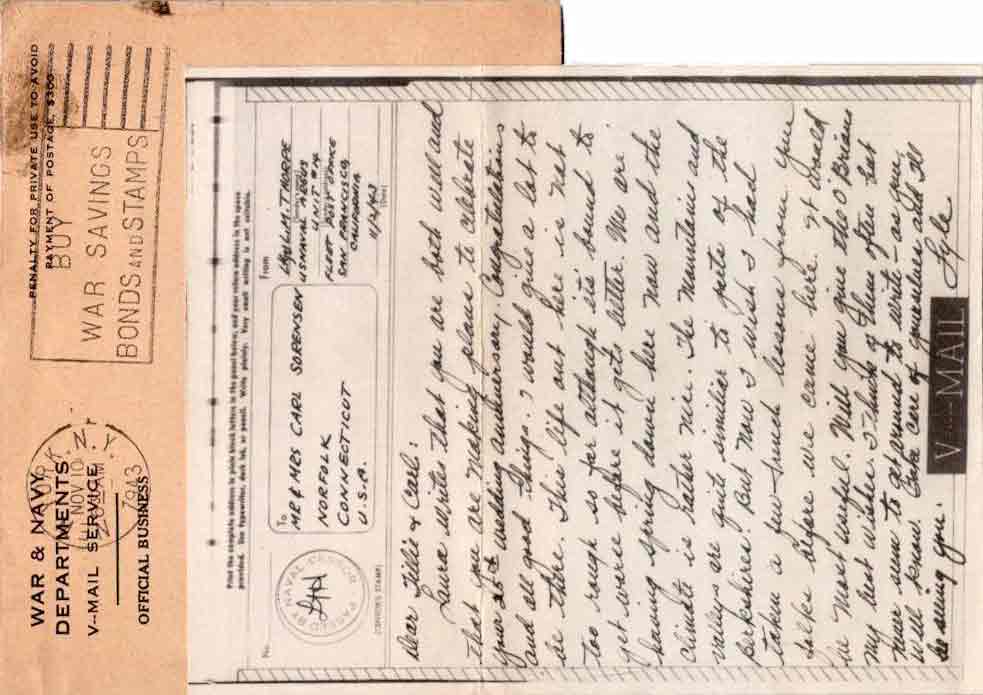 WAR & NAVY
DEPARTMENTS
V-MAIL SERVICE
OFFICIAL BUSINESS
NOV 10
1943
N.Y.
PENALTY FOR PRIVATE USE TO AVOID
PAYMENT OF POSTAGE, $300
BUY
WAR SAVINGS
BONDS AND STAMPS
Print the complete address in plain block letters in the panel below, and your return address in the space
provided. Use typewriter, dark ink, or pencil. Write plainly. Very small writing is not suitable.
No.
PASSED BY NAVAL CENSOR
(CENSOR'S STAMP)
To
MR & MRS CARL SORENSEN
NORFOLK
CONNECTICOT
U.S.A.
From
M. THORPE
US NAVAL
UNIT #4
FLEET POST OFFICE
SAN FRANCISCO
CALIFORNIA
(Date)
Dear Tillie & Carl:
Laura writes that you are both well and
that you are making plans to celebrate
your 25th wedding anniversary. Congratulations
and all good things. I would give a lot to
be there. This life out here is not
too rough so far although it's bound to
get worse before it gets better. We are
having spring down here now and the
climate is rather nice. The mountains and
valleys are quite similar to parts of the
Berkshires. But now I wish I had
taken a few French lessons from you
folks before we came here. It would
be most useful. Will you give the O'Briens
my best wishes. I think of them often but
never seem to get around to write - as you
well know. Take care of yourselves and I'll
be seeing you. Lyle
V···—MAIL